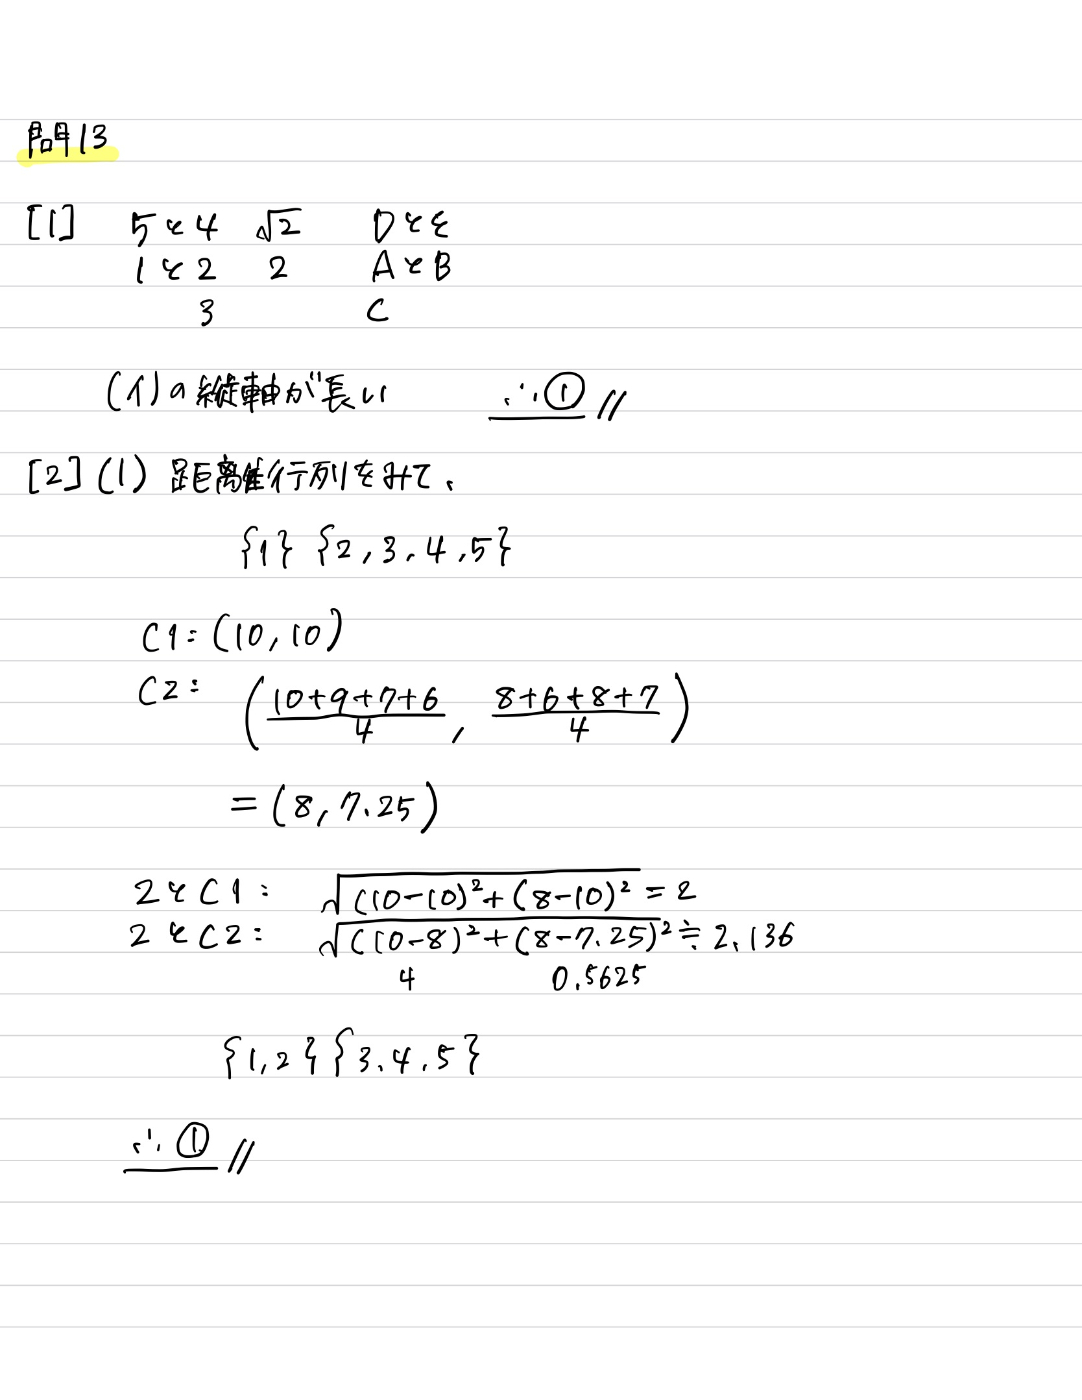 問13
[1] 5と4 √2 DとE
1と2 2 AとB
3 C
(イ)の縦軸が長い ∴①//
[2](1) 距離行列をみて、
{1} {2,3,4,5}
C1:(10,10)
C2: ((10+9+7+6)/4, (8+6+8+7)/4)
=(8,7.25)
2とC1: √((10-10)²+(8-10)²) = 2
2とC2: √((10-8)²+(8-7.25)²) ≒ 2.136
4 0.5625
{1,2} {3,4,5}
∴①//